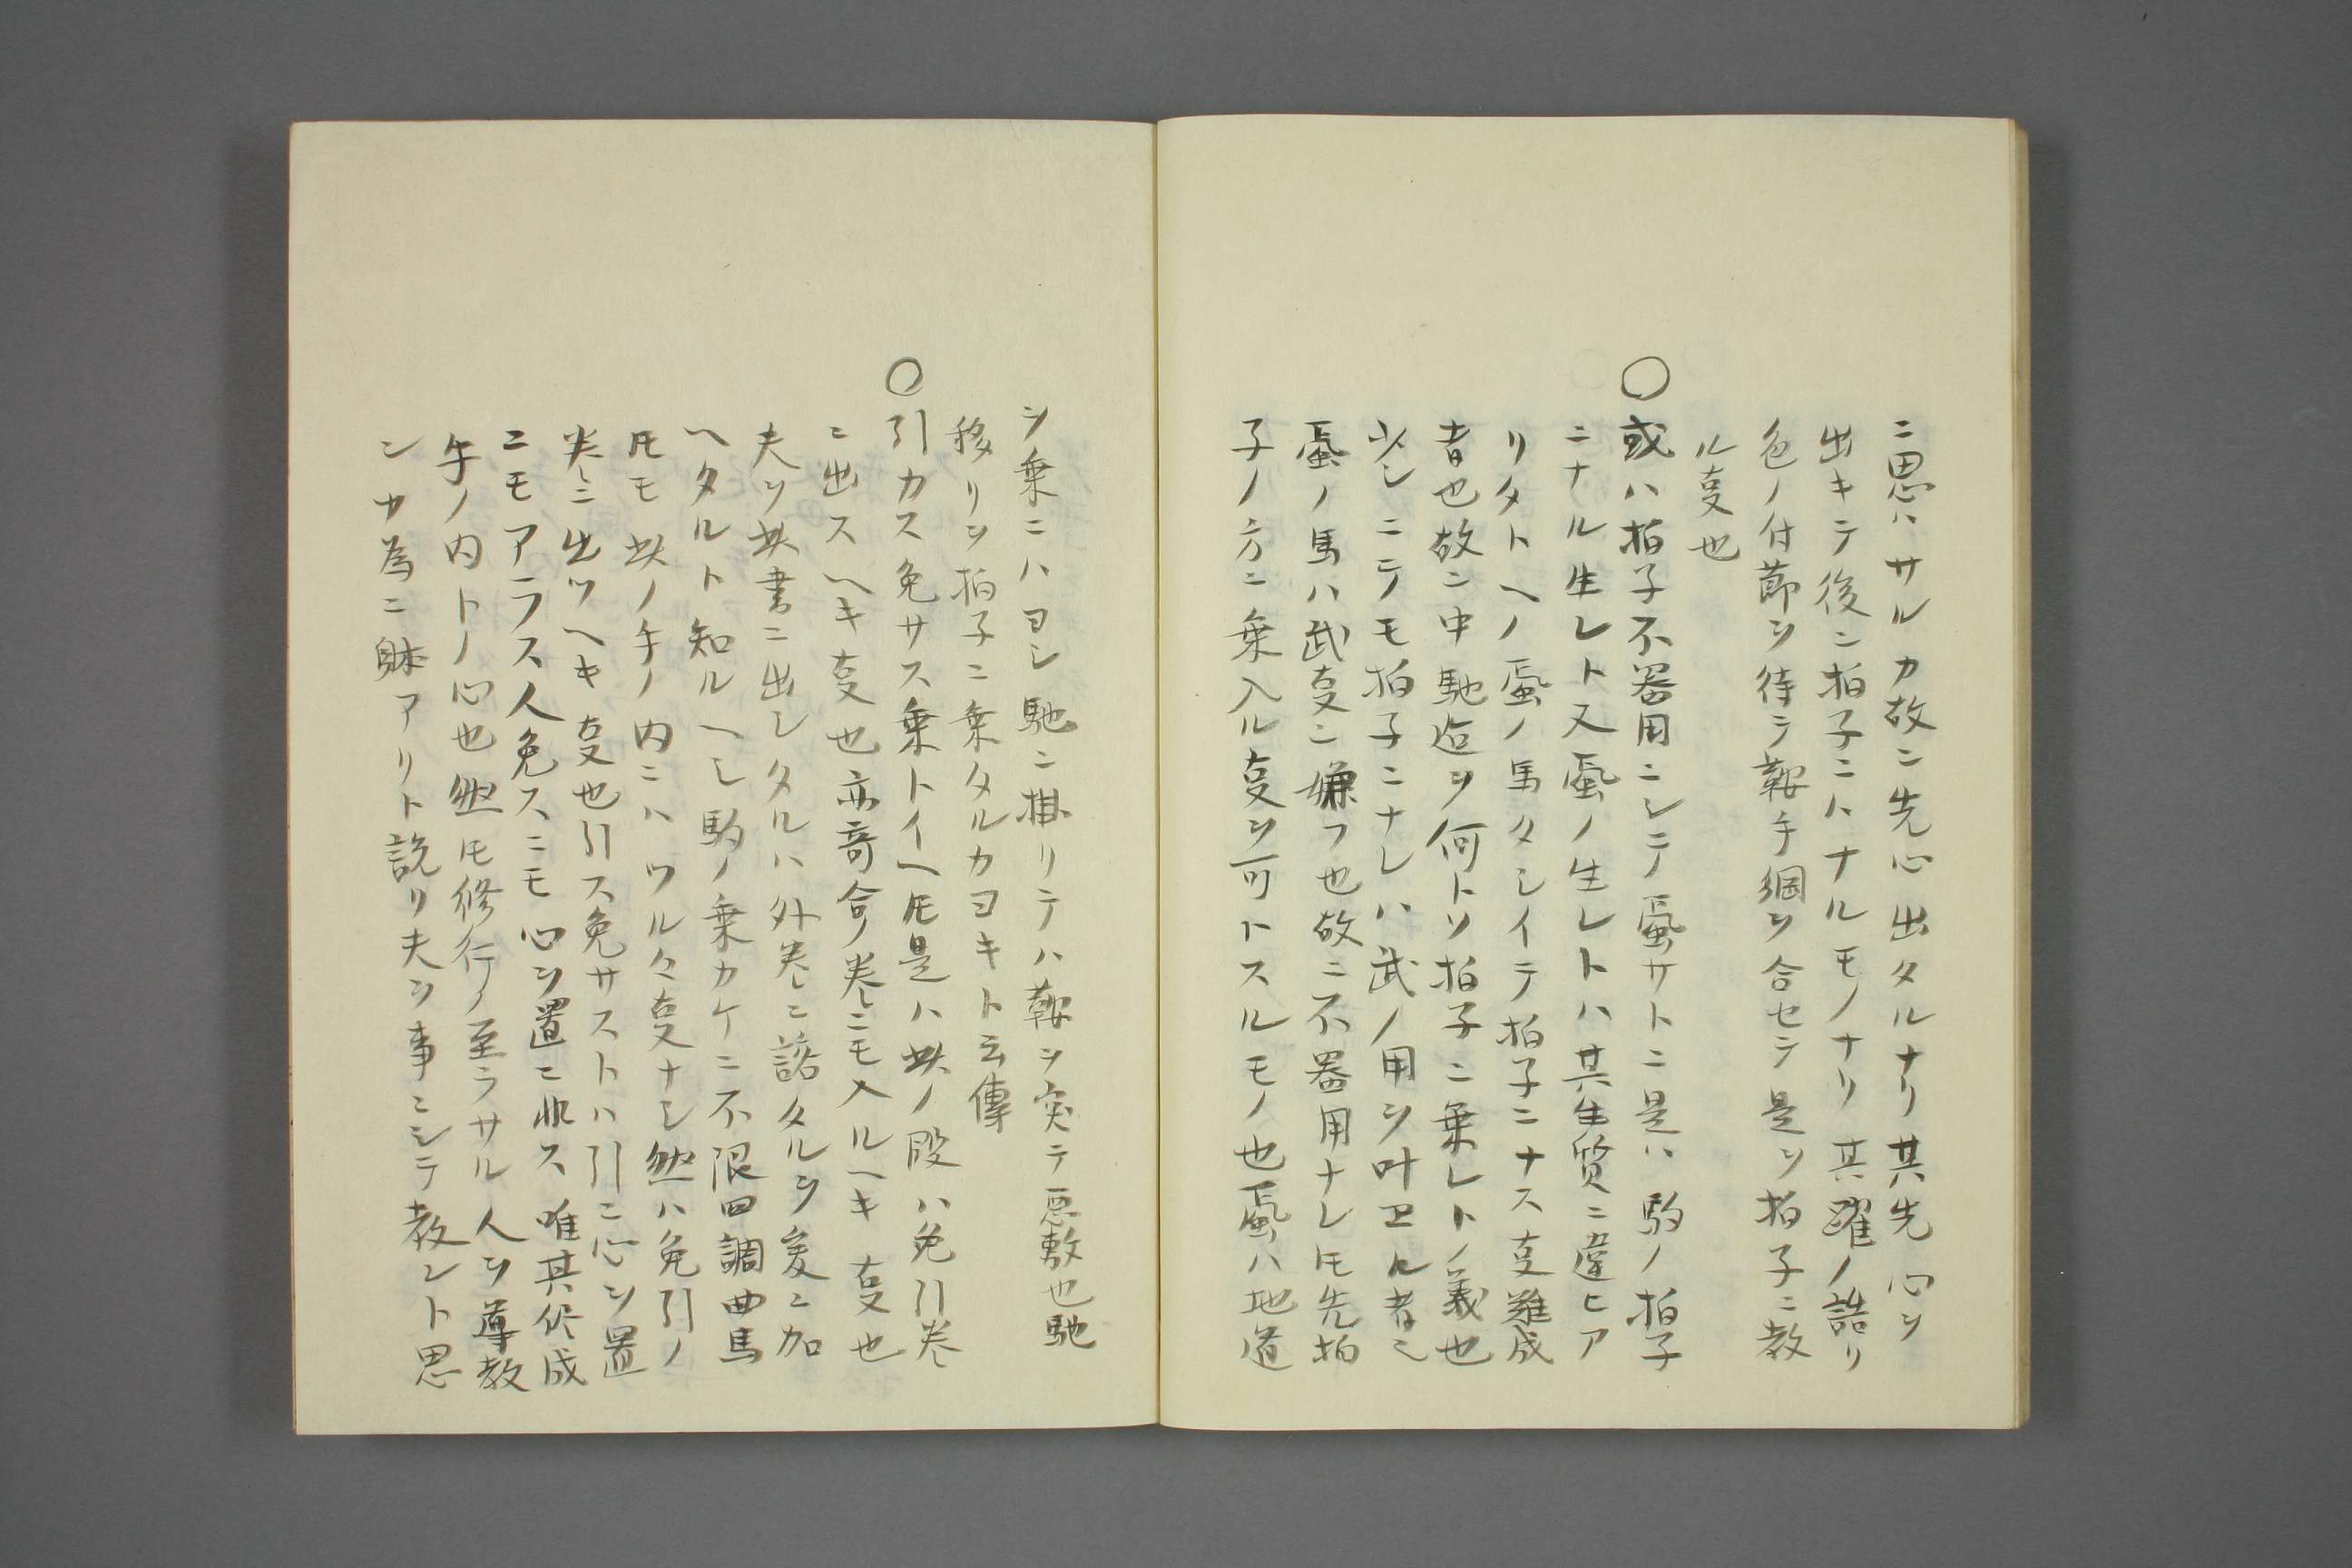 ニ思ハサルカ故ニ先心出タルナリ其先心ヲ
出キテ後ニ拍子ニハナルモノナリ其躍ノ詰リ
色ノ付節ヲ待テ鞍手綱ヲ合セテ是ヲ拍子ニ教
ル叓也
○或ハ拍子不器用ニシテ蜃サトニ是ハ駒ノ拍子
ニナル生レト又蜃ノ生レトハ其生質ニ違ヒア
リタトヘノ蜃ノ馬タシイテ拍子ニナス叓難成
者也故ニ中馳迄ヲ何トソ拍子ニ乗レトノ義也
少シニテモ拍子ニナレハ武ノ用ヲ叶ヱル者ニ
蜃ノ馬ハ武叓ニ嫌フ也故ニ不器用ナレ𪜈先拍
子ノ方ニ乗入ル叓ヲ可トスルモノ也蜃ハ地道
ヲ乗ニハヨシ馳ニ掛リテハ鞍ヲ突テ悪敷也馳
移リヲ拍子ニ乗タルカヨキト云傳
○引カス免サス乗トイヘ𪜈是ハ此ノ段ハ免引巻
ニ出スヘキ叓也亦哥合ノ巻ニモ入ルヘキ叓也
夫ヲ此書ニ出シタルハ外巻ニ諮タルヲ爰ニ加
ヘタルト知ルヘシ駒ノ乗カケニ不限四調曲馬
𪜈モ此ノ手ノ内ニハワルク叓ナシ然ハ免引ノ
巻ニ出ツヘキ叓也引ス免サストハ引ニ心ヲ置
ニモアラス人免スニモ心ヲ置ニ非ス唯其侭成
手ノ内トノ心也然𪜈修行ノ至ラサル人ヲ導教
ンカ為ニ躰アリト説リ夫ヲ事ニシテ教ント思